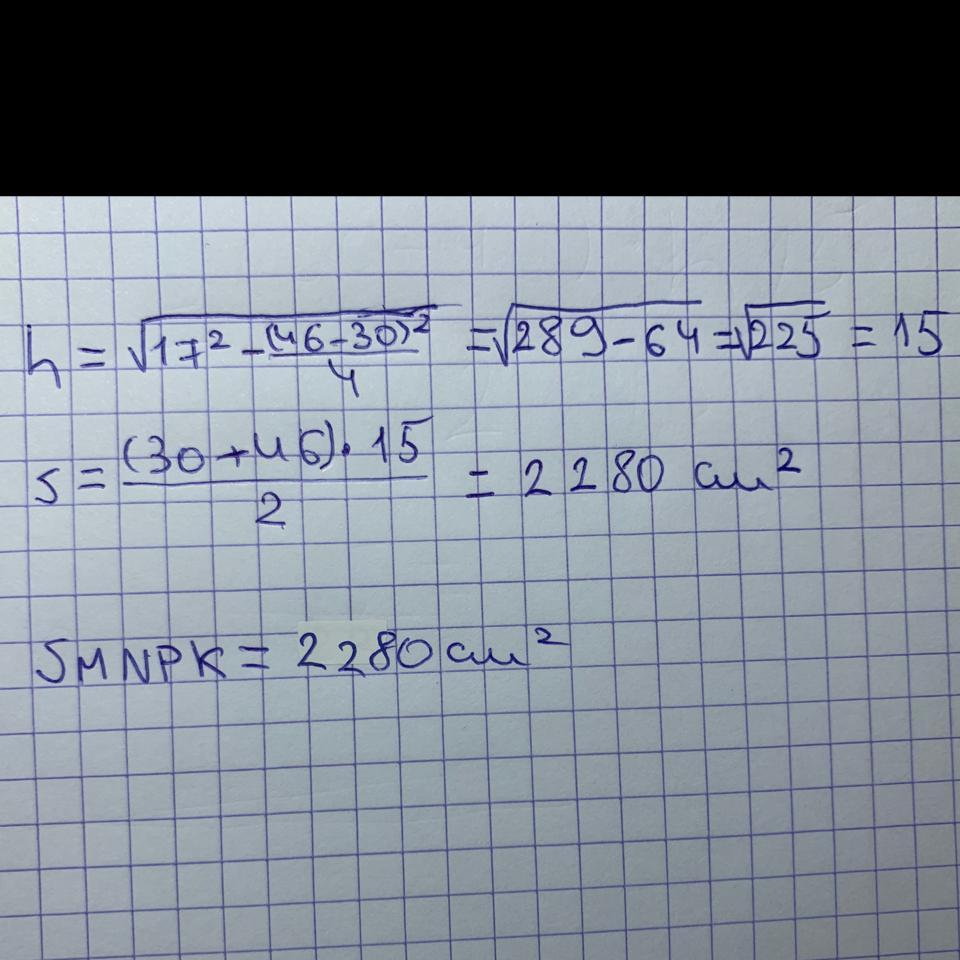 h = √17² - (46-30)²/4 = √289-64 = √225 = 15
S = (30+46)·15/2 = 2280 см²
SMNPK = 2280 см²